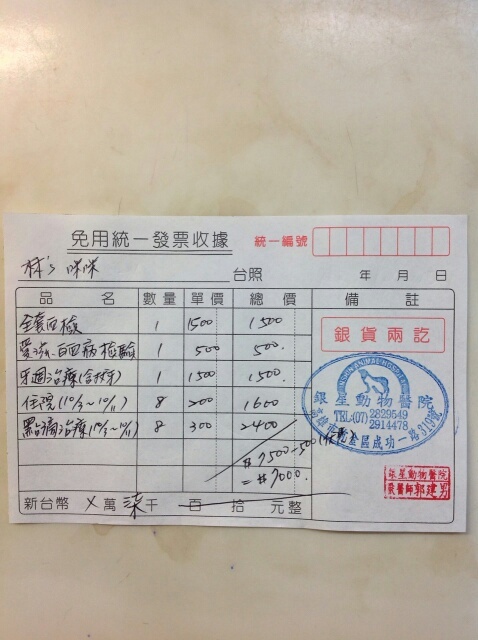 免用統一發票收據
統一編號
林's 咪咪 台照 年 月 日
品名 數量 單價 總價 備註
全套血檢 1 1500 1500
愛滋、白血病檢驗 1 500 500.
牙週治療(含拔牙) 1 1500 1500.
住院(10/3~10/11) 8 200 1600
點滴治療(10/3~10/11) 8 300 2400
$7500-500
=$7000.
新台幣 X萬 柒千 百 拾 元整
銀貨兩訖
銀星動物醫院
TEL:(07)2829549
2914478
銀星動物醫院
獸醫師郭建男